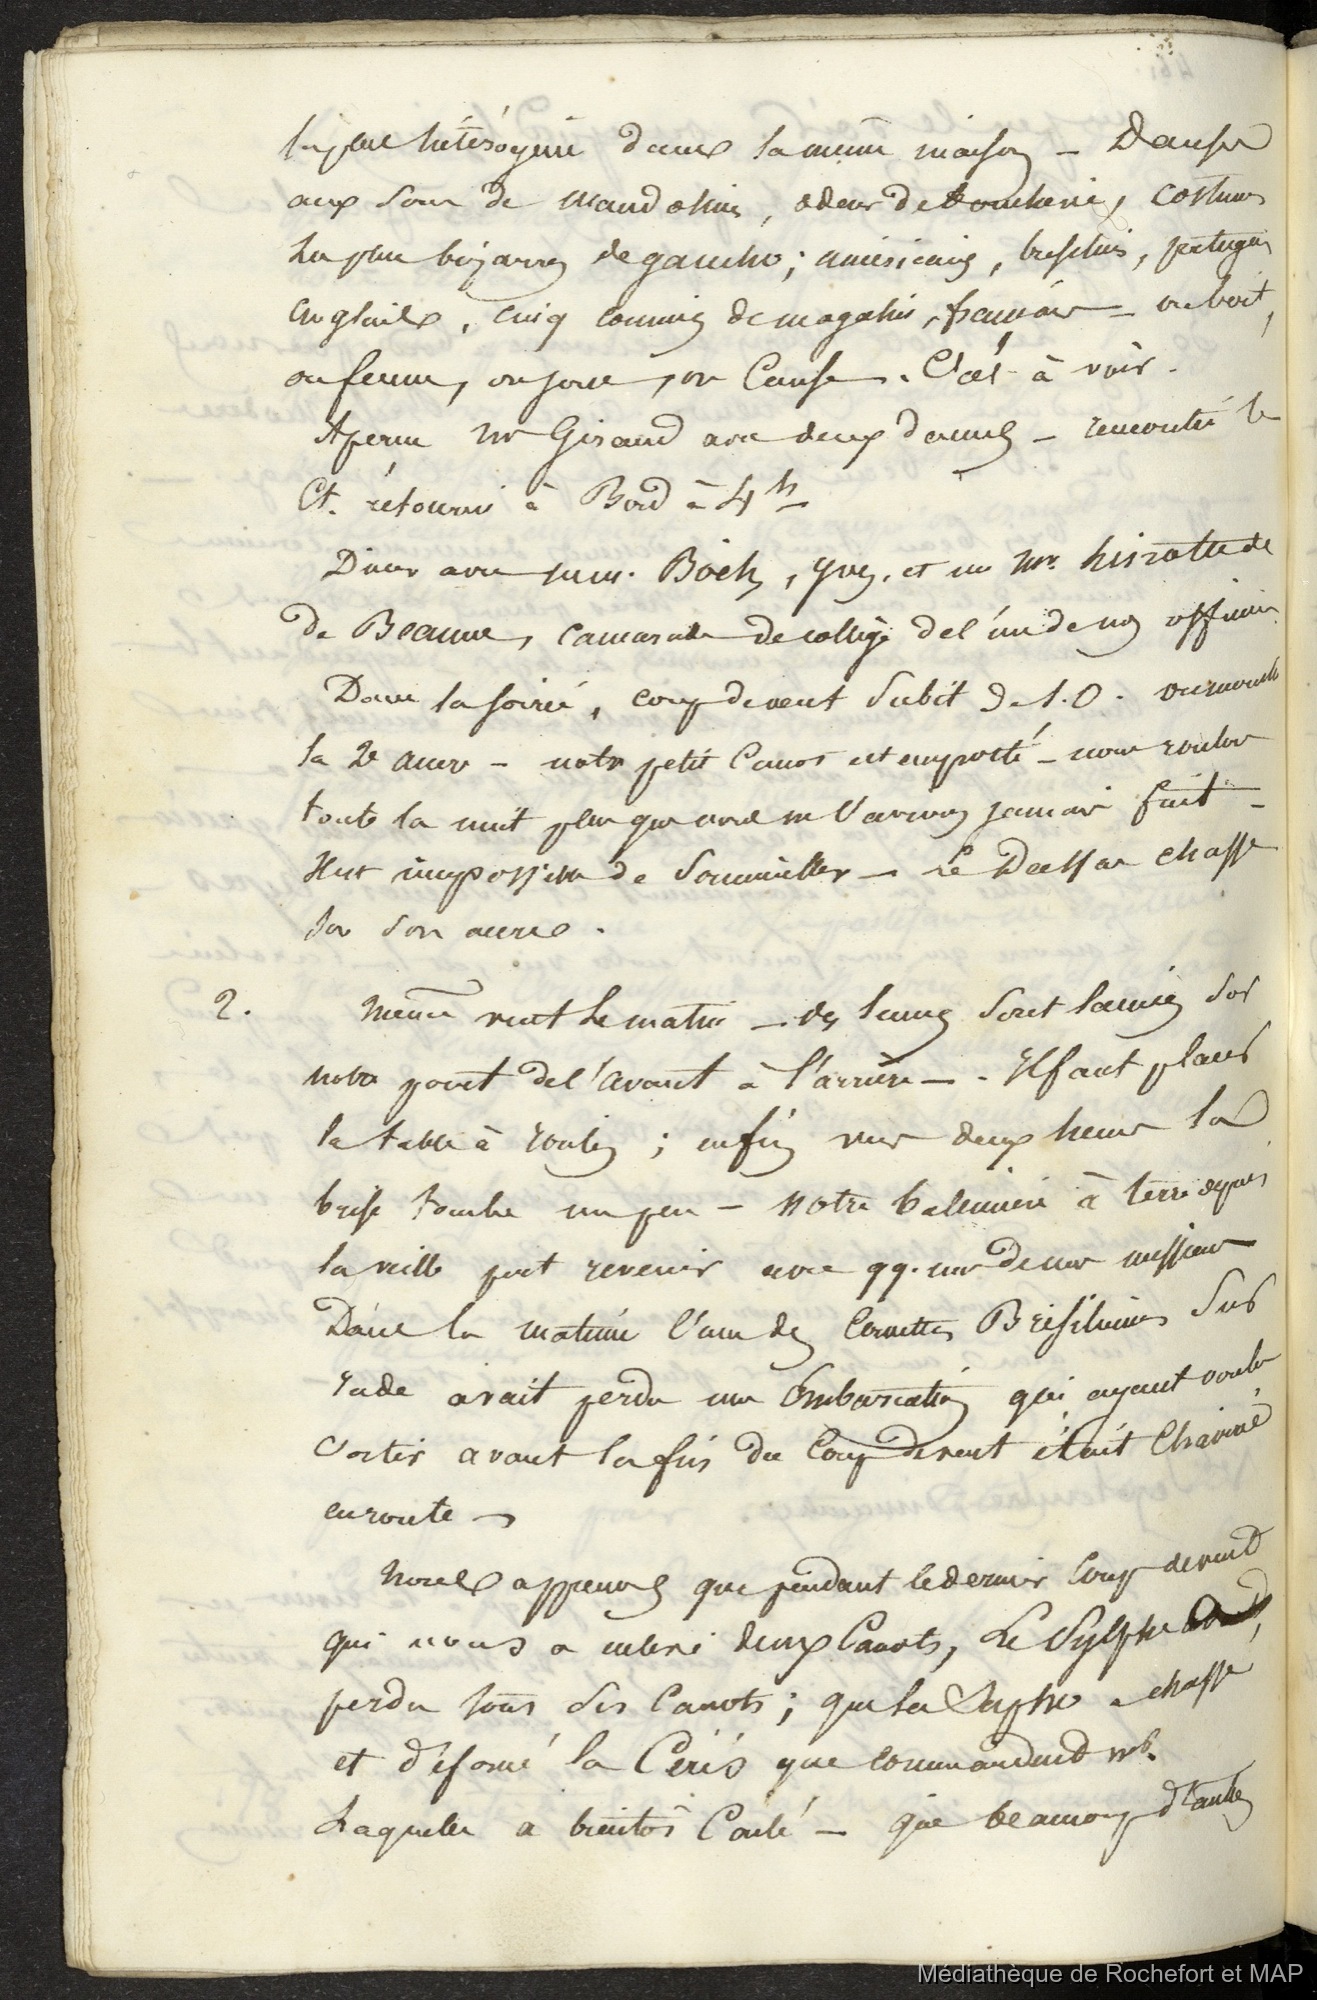 la plus hétérogène dans la même maison – Danses
aux sons de mandoline, odeur de boucherie, costumes
les plus bizarres de gaucho; américains, brésiliens, portugais
anglais, cinq commis de magasin, français – on boit,
on fume, on joue, on cause. C'est à voir.
Aperçu Mr Giraud avec deux dames – rencontré le
Ct. retourné à Bord à 4h
Diner avec mm. Boels, et un Mr.
de Beaune, camarade de collège de l'un de nos officiers
Dans la soirée, coup de vent subit de S.O. on mouille
la 2e ancre – notre petit canot est emporté – nous roulons
toute la nuit plus que nous ne l'avions jamais fait –
Il est impossible de sommeiller – Le Dassas chasse
sur son ancre.
2. Même vent le matin – des lames sont lancées sur
notre pont de l'avant à l'arrière – . Il faut placer
la table à roulis; enfin vers deux heures la
brise tombe un peu – Notre baleinière à terre depuis
la veille peut revenir avec qq. uns de nos messieurs
Dans la matinée l'une des Corvettes Brésiliennes sur
rade avait perdu une Embarcation qui ayant voulu
sortir avant la fin du coup de vent était chaviré
en route –
Nous apprenons que pendant le dernier coup de vent
qui nous a enlevé deux Canots, Le Sylphe
perdu tous ses Canots; que la Sapho a chassé
et défoncé la Cérès que commandait mr.
Laquelle a bientôt coulé – que beaucoup d'autres